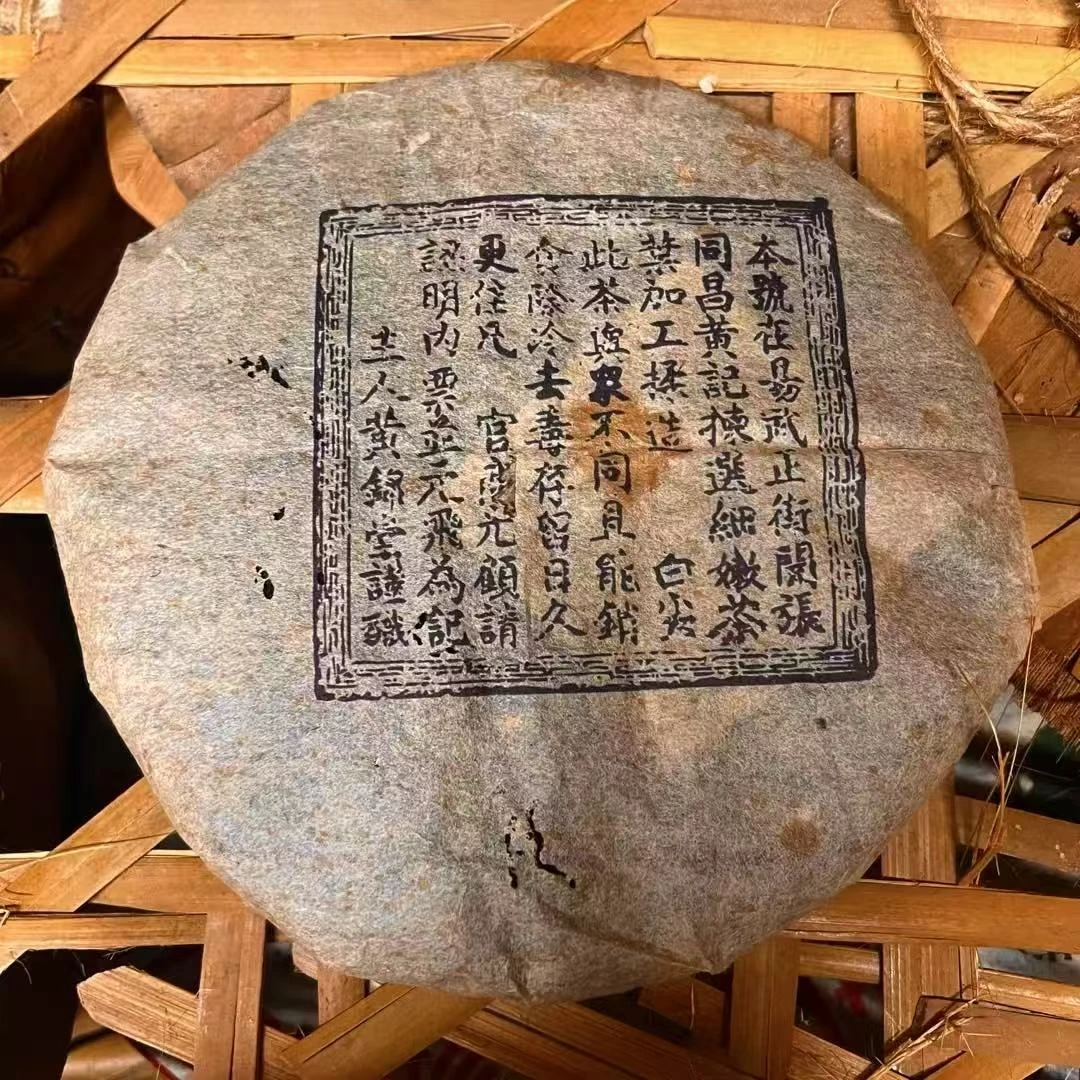 本號在易武正街開張
同昌黄記揀選細嫩茶
葉加工揉造 白尖
此茶與衆不同且能銷
食除冷去毒存留日久
更佳凡 官商光顧請
認明内票正元飛為記
主人黄錦堂謹識